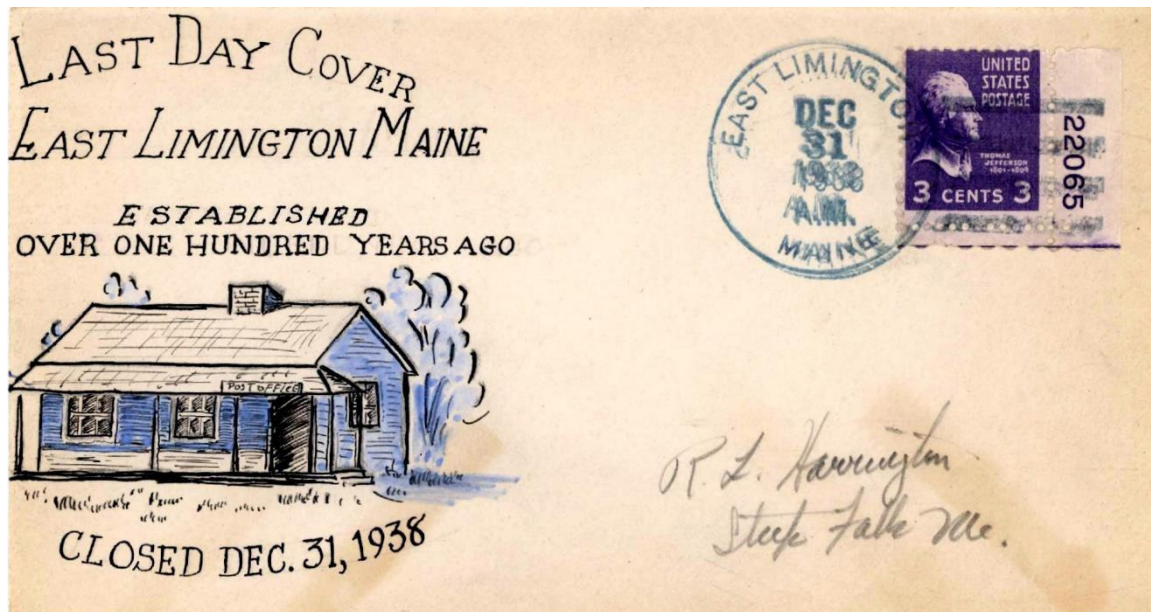 LAST DAY COVER
EAST LIMINGTON MAINE
ESTABLISHED
OVER ONE HUNDRED YEARS AGO
POST OFFICE
CLOSED DEC. 31, 1938
EAST LIMINGTON
DEC
31
1938
A.M.
MAINE
UNITED
STATES
POSTAGE
THOMAS
JEFFERSON
1801-1809
3 CENTS 3
22065
R. L. Harrington
Steep Falls Me.